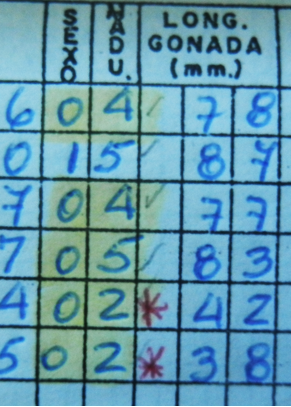 SEXO MADU. LONG. GONADA (mm.)
6 0 4 ✓ 7 8
0 1 5 ✓ 8 7
7 0 4 ✓ 7 7
7 0 5 ✓ 8 3
4 0 2 * 4 2
5 0 2 * 3 8